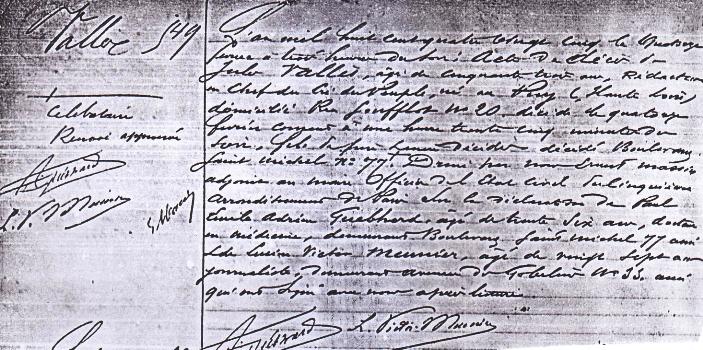 Vallès 549
célibataire
Renvoi approuvé
A Guébhard
L. V. Meunier
L'an mil huit cent quatre vingt cinq, le quatorze
février à trois heures du soir. Acte de décès de
Jules Vallès, âgé de cinquante trois ans, Rédacteur
en Chef du Cri du Peuple, né au Puy (Haute Loire)
domicilié Rue Soufflot no 20, décédé le quatorze
février courant à une heure trente cinq minutes du
soir, décédé Boulevard
Saint michel no 77. Dressé par nous Ernest
adjoint au maire Officier de l'Etat civil du cinquième
arrondissement de Paris sur la déclaration de Paul
Emile Adrien Guébhard, âgé de trente six ans, docteur
en médecine, demeurant Boulevard Saint michel 77 ami
& de Lucien Victor Meunier, âgé de vingt sept ans
journaliste, demeurant avenue des Gobelins No 33. ami
qui ont signé avec nous après lecture.
A Guébhard L. Victor Meunier